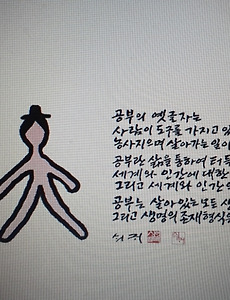 공부의 옛글자는
사람이 도구를 가지고 있
농사지으며 살아가는 일이
공부란 삶을 통하여 터득
세계와 인간에 대한
그리고 세계와 인간의
공부는 살아있는 모든 생
그리고 생명의 존재형식